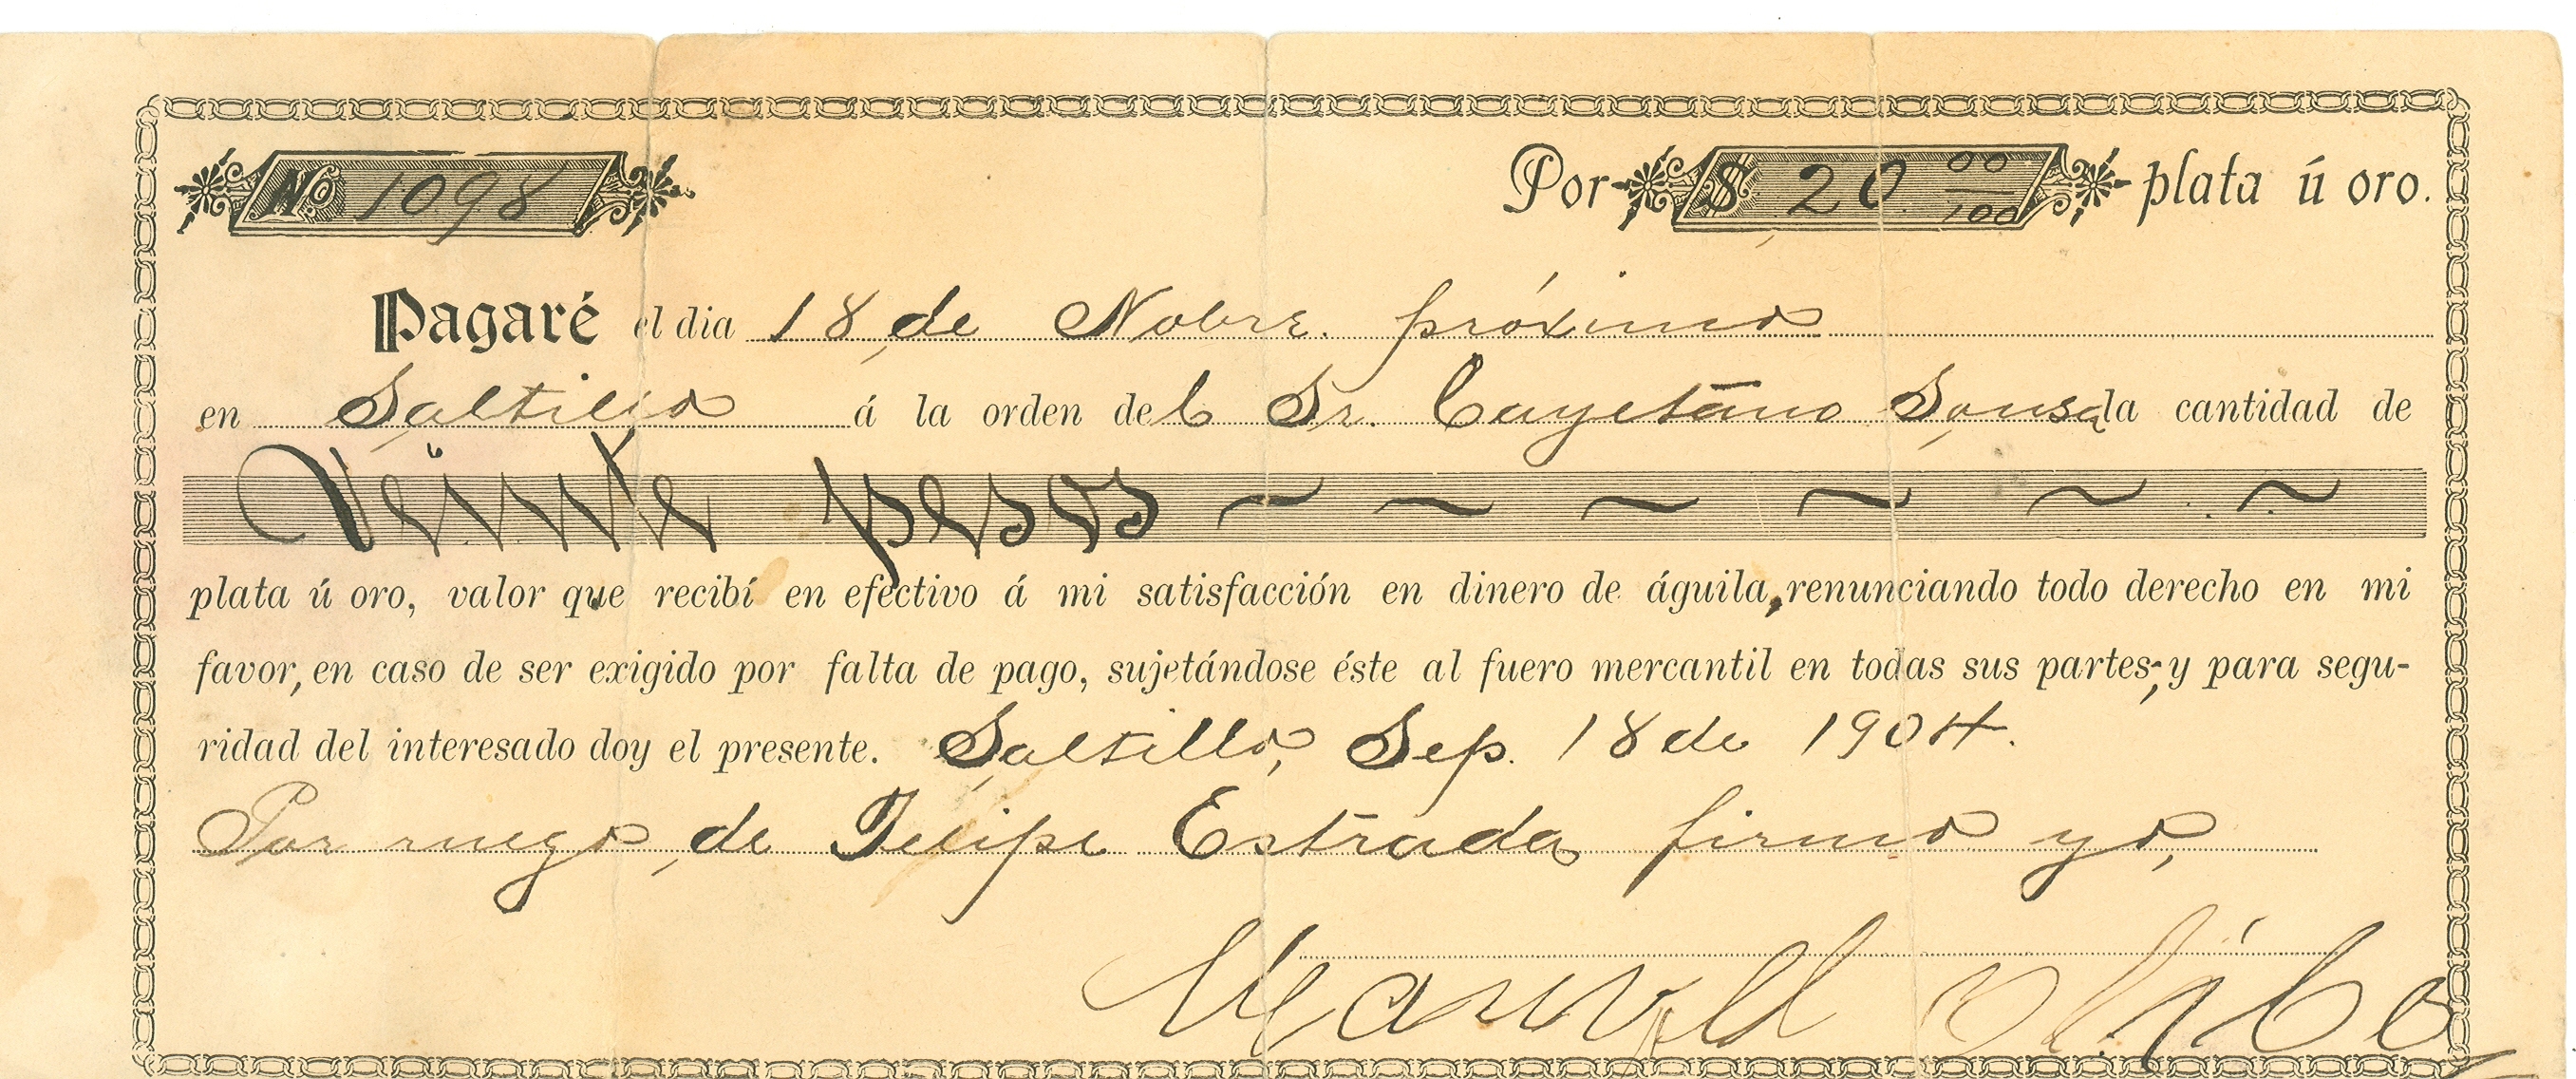 No 1098 Por $ 20 00/100 plata ú oro.
Pagaré el dia 18 de Nobre. próximo
en Saltillo á la orden del Sr. Cayetano Sousa la cantidad de
Veinte pesos ~ ~ ~ ~ ~ ~
plata ú oro, valor que recibí en efectivo á mi satisfacción en dinero de águila, renunciando todo derecho en mi
favor, en caso de ser exigido por falta de pago, sujetándose éste al fuero mercantil en todas sus partes, y para segu-
ridad del interesado doy el presente. Saltillo, Sep. 18 de 1904.
Por ruego de Felipe Estrada firmo yo,
Manuel